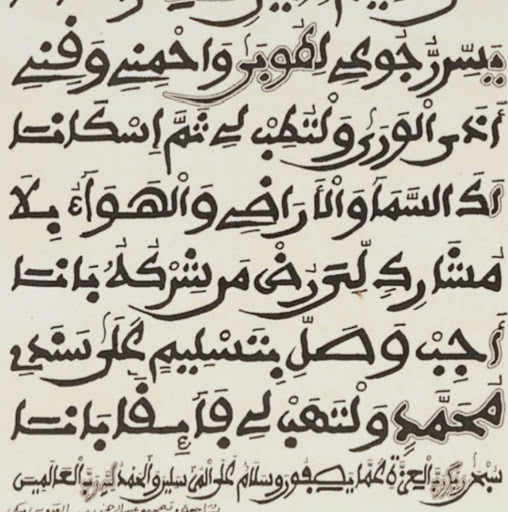 يَسِّرْ رُجُوعِي لِطُوبَى وَاحْمِنِي وَقِنِي
أَذَى الْوَرَى وَلْتَطِبْ لِي ثَمَّ إِسْكَانَا
أَدَا السَّمَا وَالْأَرَاضِي وَالْهَوَاءِ بِلَا
مُشَارِكٍ مَن شِرْكُهُ بَانَا
أَجِبْ وَصَلِّ بِتَسْلِيمٍ عَلَى سَنَدِي
مُحَمَّدٍ وَلْتَهَبْ لِي
سُبْحَٰنَ رَبِّكَ رَبِّ الْعِزَّةِ عَمَّا يَصِفُونَ وَسَلَامٌ عَلَى الْمُرْسَلِينَ وَالْحَمْدُ لِلَّهِ رَبِّ الْعَالَمِينَ